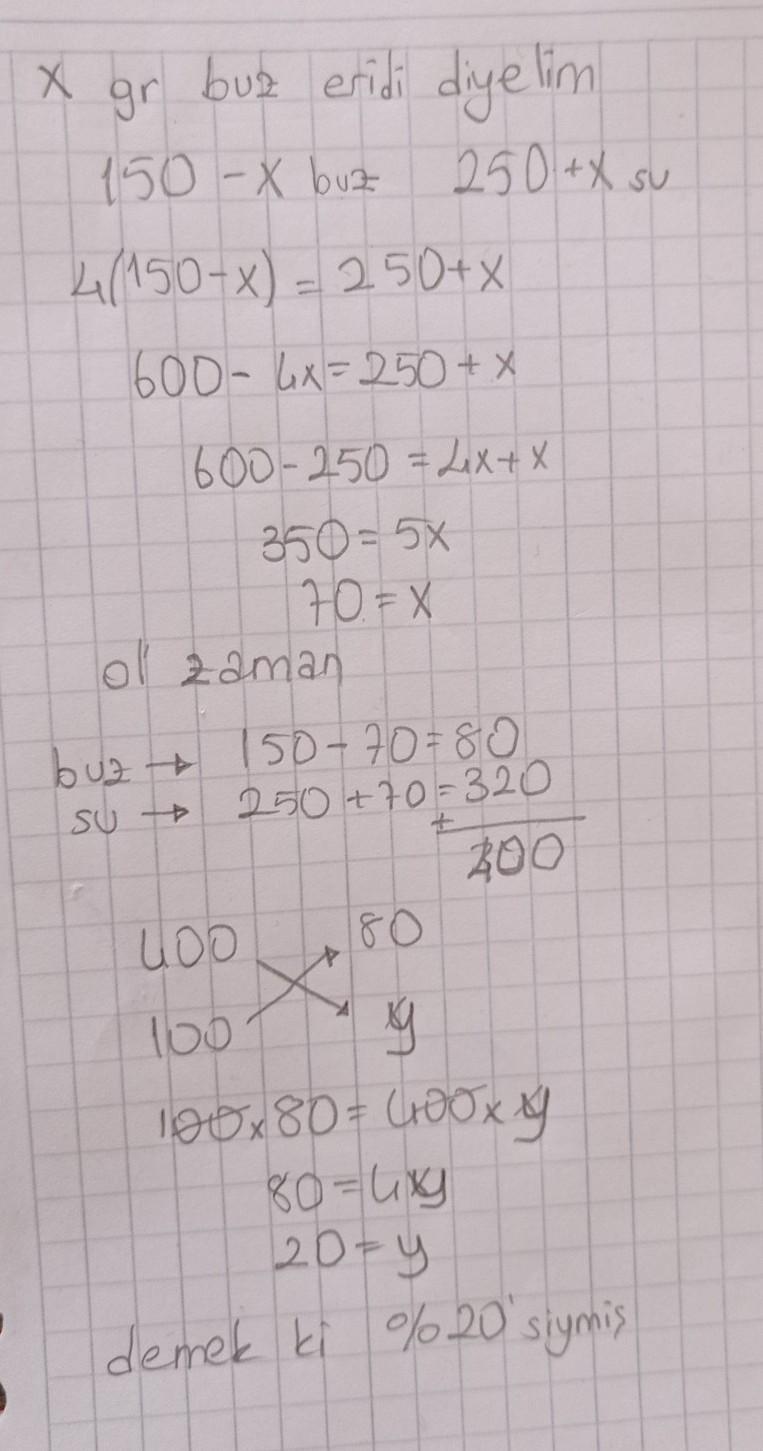 x gr buz eridi diyelim
150 - x buz 250 + x su
4(150 - x) = 250 + x
600 - 4x = 250 + x
600 - 250 = 4x + x
350 = 5x
70 = x
zaman
buz → 150 - 70 = 80
su → 250 + 70 = 320
+
400
400 80
100 y
100 x 80 = 400 x y
80 = 4xy
20 = y
demek ki %20'siymiş